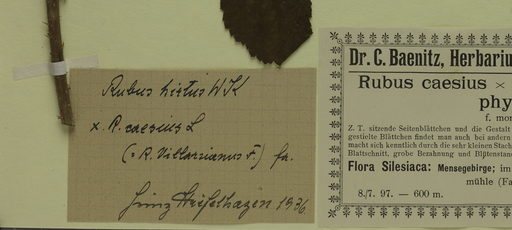 Rubus hirtus WK
x R. caesius L
(= R. Villarsianus F.) fa.
1936
Dr. C. Baenitz, Herbariu
Rubus caesius ×
phy
f. mor
Z. T. sitzende Seitenblättchen und die Gestalt
gestielte Blättchen findet man auch bei andern
macht sich kenntlich durch die sehr kleinen Stach
Blattschnitt, grobe Bezahnung und Blütenstand
Flora Silesiaca: Mensegebirge; im
mühle (Fa
8./7. 97. — 600 m.